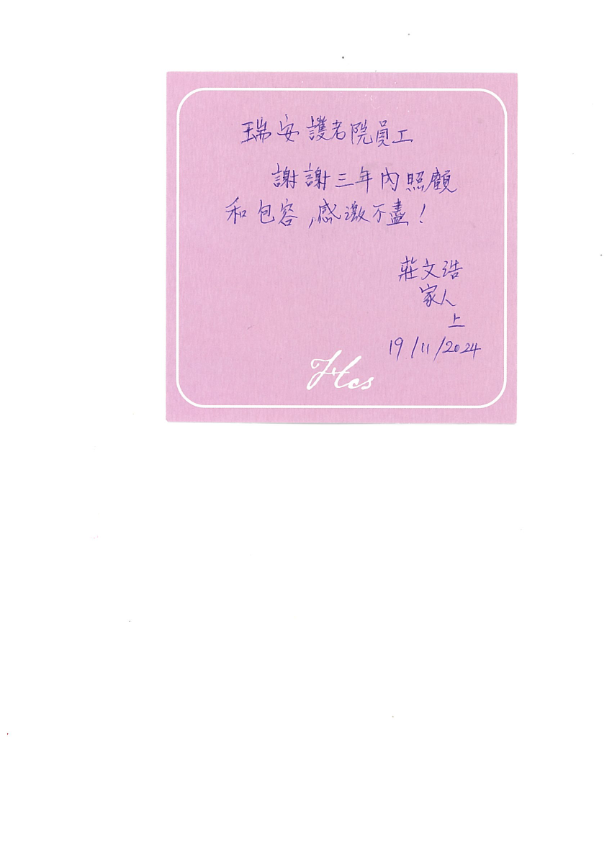 瑞安護老院員工
謝謝三年內照顧
和包容,感激不盡!
莊文浩
家人
上
19/11/2024
Hcs